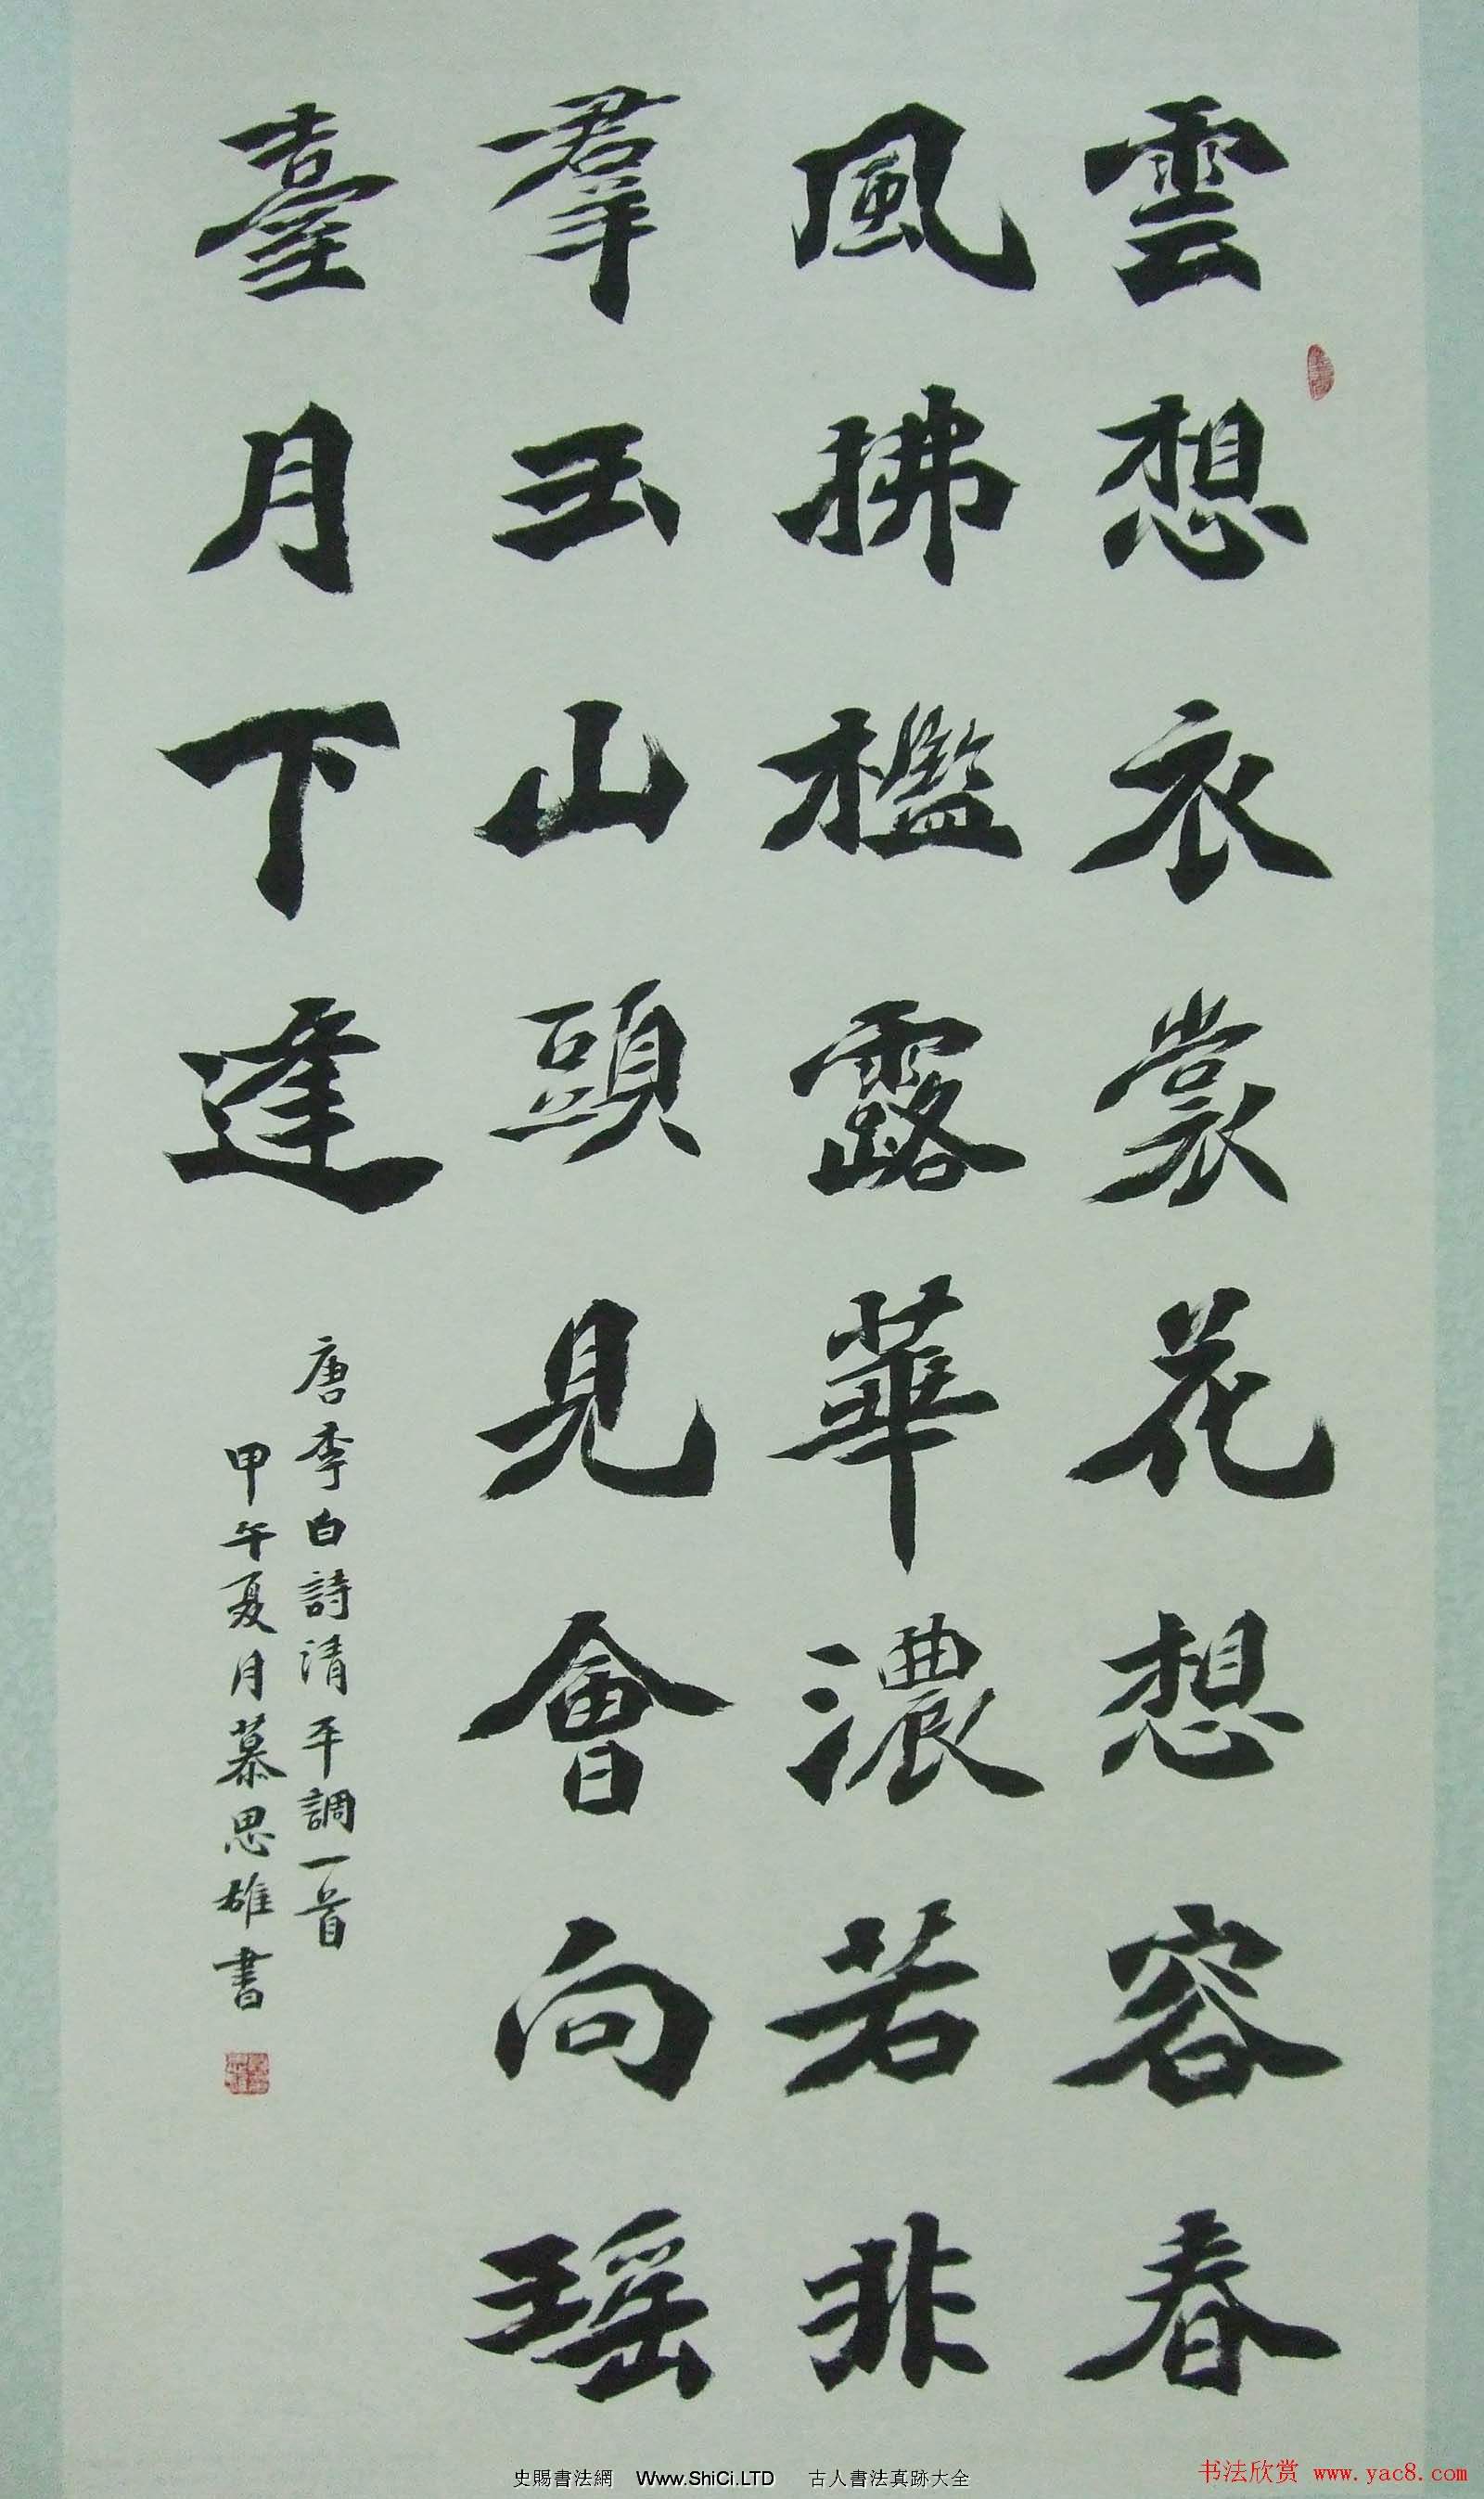 雲想衣裳花想容春
風拂檻露華濃若非
羣玉山頭見會向瑶
臺月下逢
唐李白詩清平調一首
甲午夏月慕思雄書
史賜書法網 Www.ShiCi.LTD 古人書法真跡大全
书法欣赏 www.yac8.com